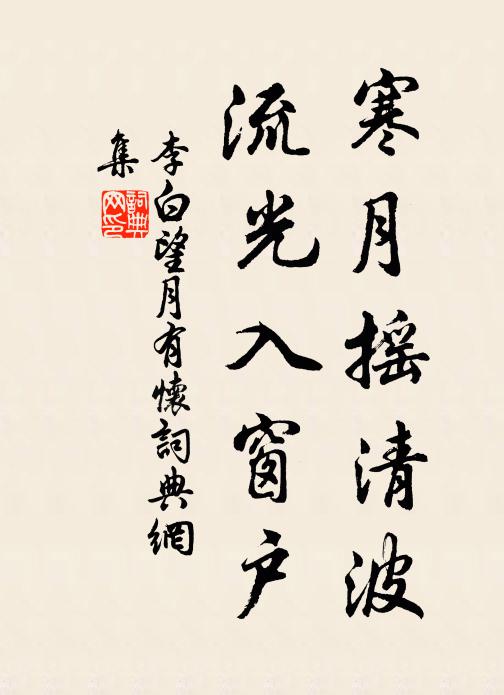 寒月摇清波
流光入窗户
李白望月有懷詞典網
集
詞典网印